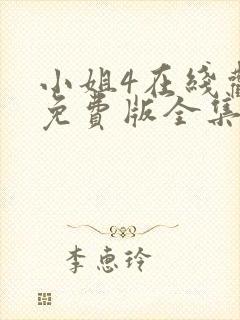 小姐4在线
免费版全集
李恵玲